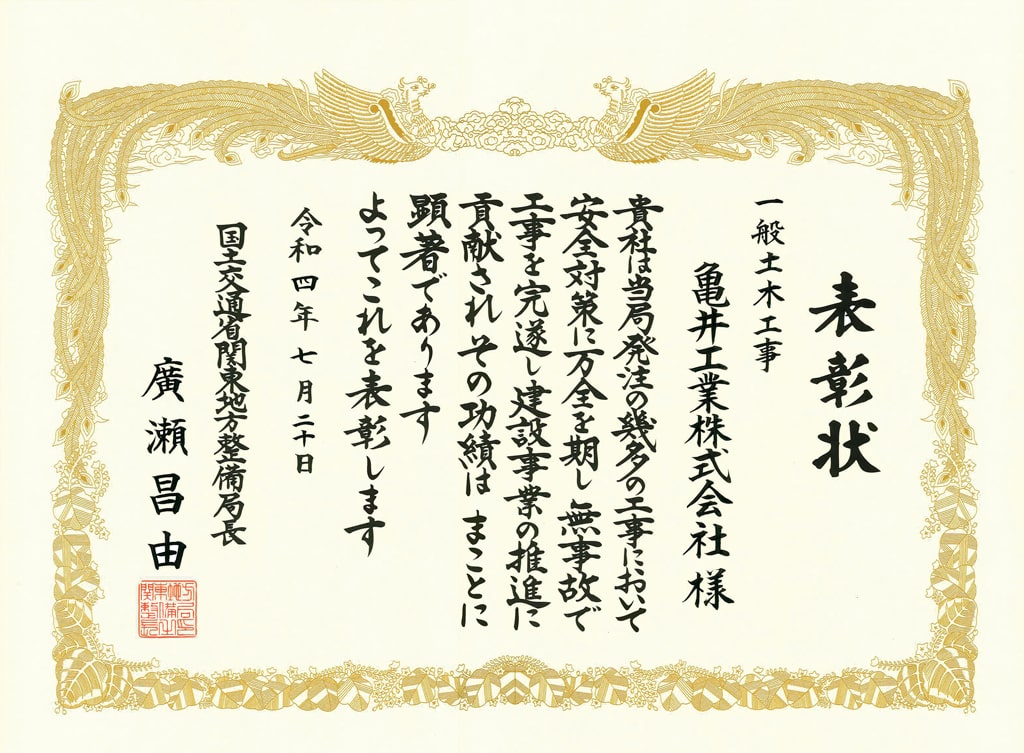 表彰状
一般土木工事
亀井工業株式会社 様
貴社は当局発注の幾多の工事において
安全対策に万全を期し 無事故で
工事を完遂し建設事業の推進に
貢献され その功績は まことに
顕著であります
よってこれを表彰します
令和四年七月二十日
国土交通省関東地方整備局長
廣瀬昌由